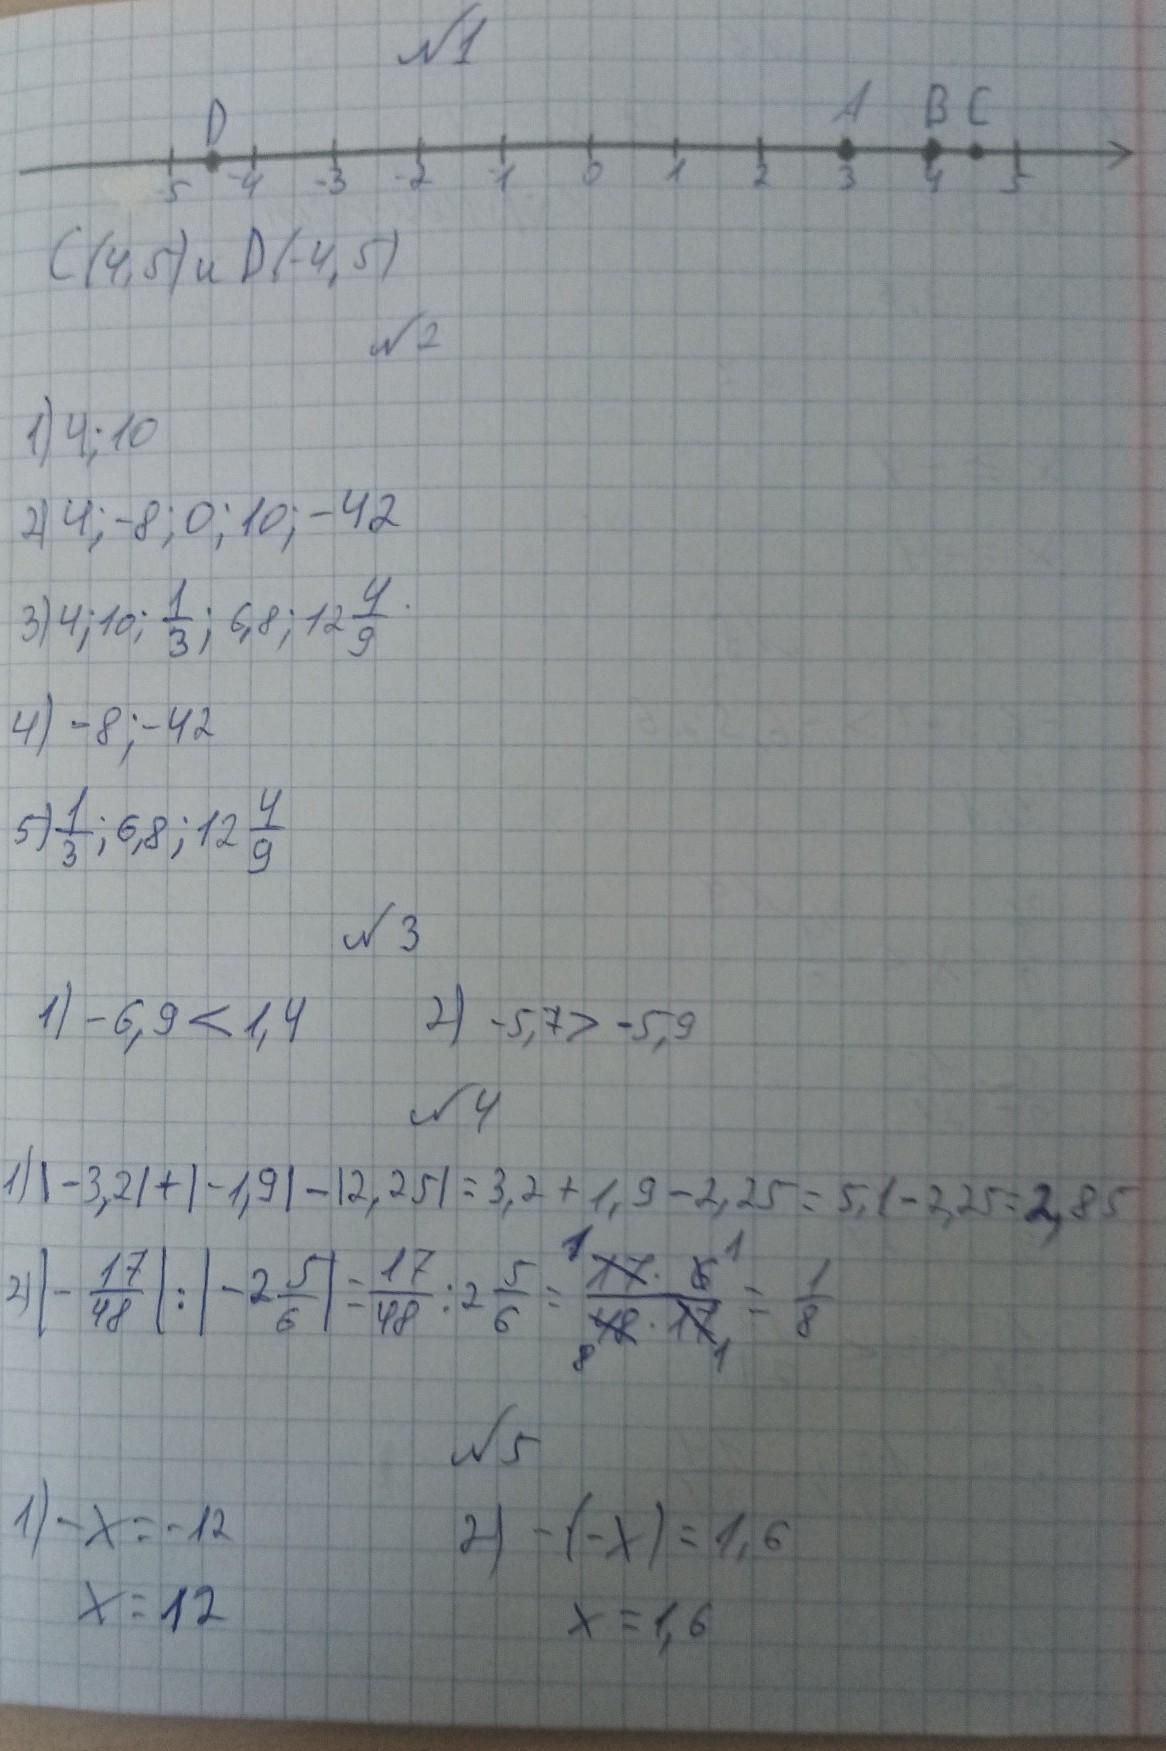 №1
D A B C
-5 -4 -3 -2 -1 0 1 2 3 4 5
C(4,5) и D(-4,5)
№2
1) 4; 10
2) 4; -8; 0; 10; -42
3) 4; 10; 1/3; 6,8; 12 4/9.
4) -8; -42
5) 1/3; 6,8; 12 4/9
№3
1) -6,9 < 1,4 2) -5,7 > -5,9
№4
1) |-3,2| + |-1,9| - |2,25| = 3,2 + 1,9 - 2,25 = 5,1 - 2,25 = 2,85
2) |-17/48| : |-2 5/6| = 17/48 : 2 5/6 = (17 · 6)/(48 · 17) = 1/8
№5
1) -x = -12 2) -(-x) = 1,6
x = 12 x = 1,6